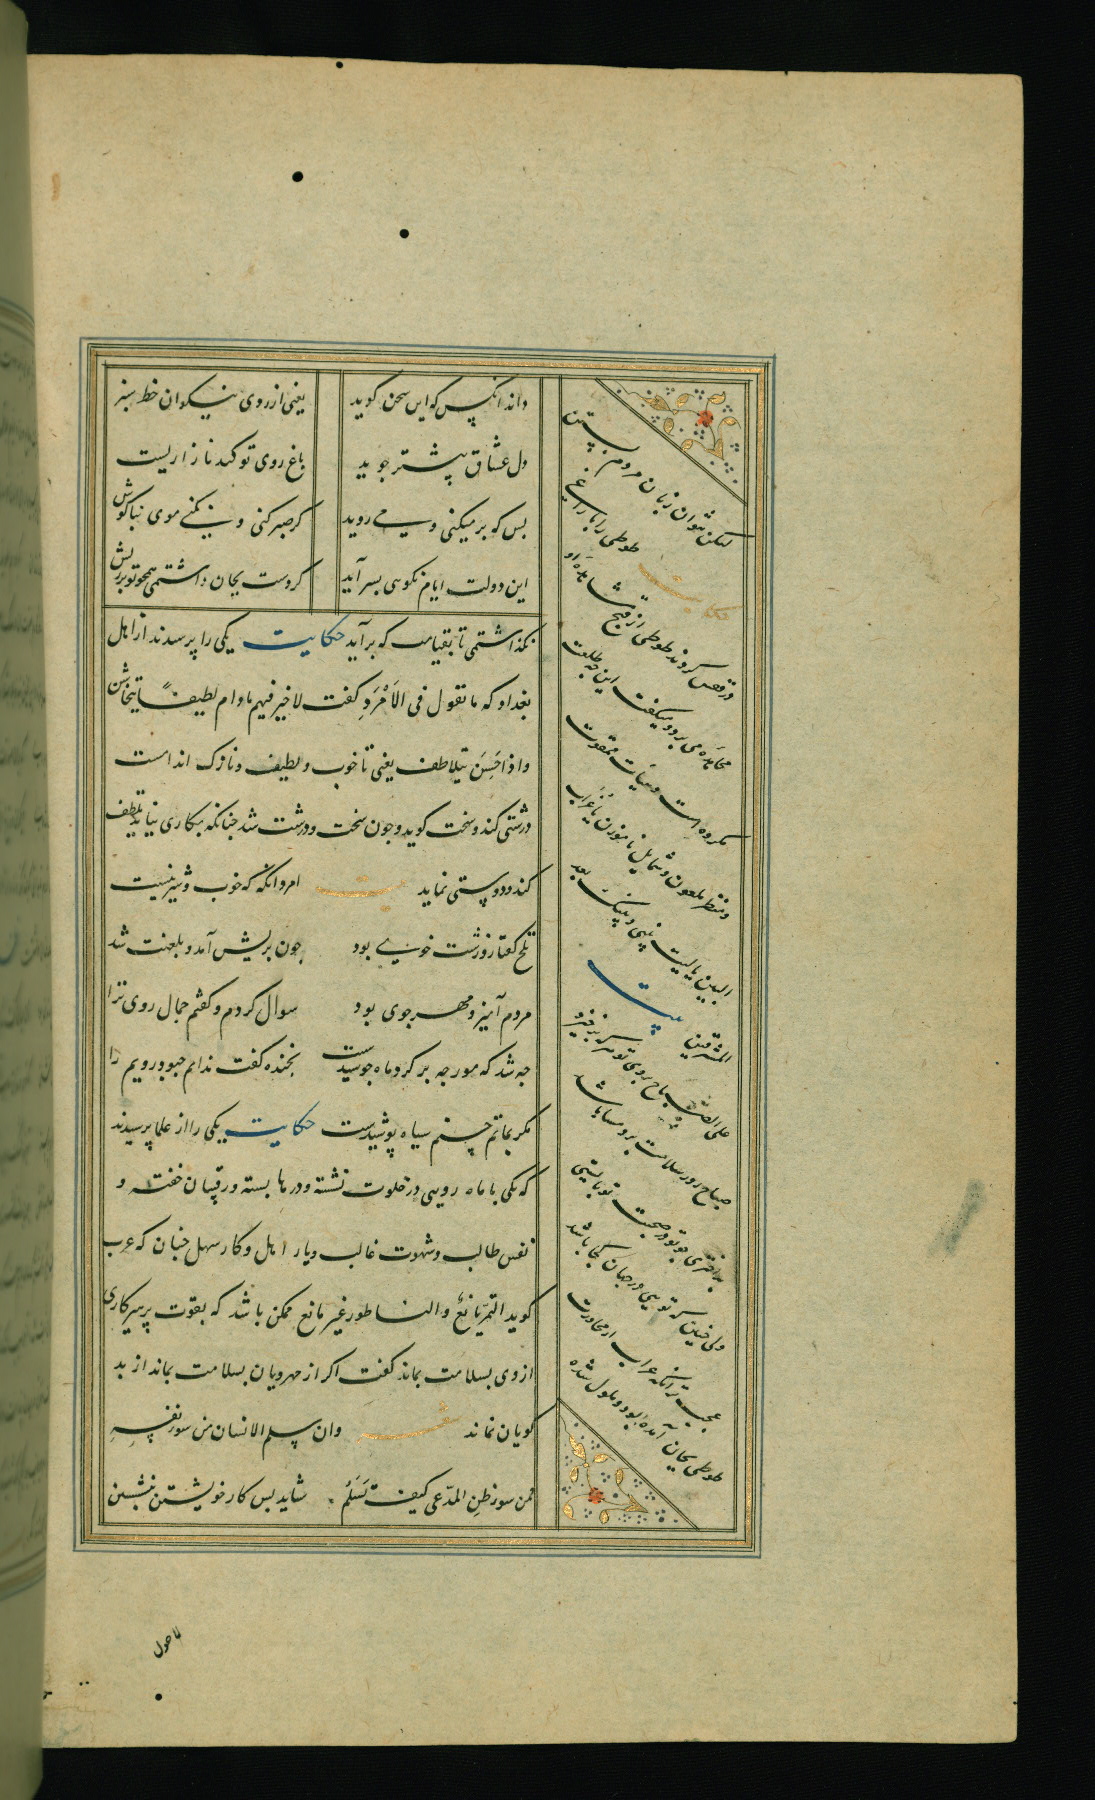 داند انکس که این سخن کوید
یعنی از روی نیکوان خط سبز
دل عشاق بیشتر جوید
باغ روی تو کند نا زاریست
بس که بر میکنی و می روید
کر صبر کنی ور نکنی موی بناکوش
این دولت ایام نکوی بسر آید
کر دست بجان داشتمی همچو تو بر ریش
نکذاشتمی تا بقیامت که بر آید حکایت یکی را پرسیدند از اهل
بغداد که ما تقول فی الاَمْرَدِ کفت لا خیر فیهم مادام لطیفاً یتخاشن
و اذا خَشِنَ یتلاطف یعنی تا خوب و لطیف و نازک اندامست
درشتی کند و سخت کوید و چون سخت و درشت شد چنانکه بکاری نیاید تلطف
کند و دوستی نماید بیت امرد انکه که خوب و شیرینست
تلخ کفتار و زشت خوی بود چون بریش آمد و بلعنت شد
مردم آمیز و مهرجوی بود سوال کردم و کفتم جمال روی ترا
چه شد که مورچه بر کرد ماه جوشیدست بخنده کفت ندانم چه بود رویم را
مکر بماتم حسنم سیاه پوشیدست حکایت یکی را از علما پرسیدند
که یکی با ماه رویی در خلوت نشسته و درها بسته و رقیبان خفته و
نفس طالب و شهوت غالب و یار اهل و کار سهل چنان که عرب
کوید التمر یانع و الناطور غیر مانع ممکن باشد که بقوت پرهیزکاری
از وی بسلامت بماند کفت اکر از مهرویان بسلامت بماند از بد
کویان نماند شعر وان سلم الانسان من سوء نفسِهِ
فمن سوء ظن المدّعی کیف تَسْلَم شاید پس کار خویشتن بنشستن
لیکن نتوان زبان مردم بستن
حکایت طوطی را با زاغی
در قفس کردند طوطی از قبح مشاهده او
مجاهده می برد و میکفت این چه طلعت
مکروه است و هیأت ممقوت
و منظر ملعون و شمایل ناموزون یا غراب
البین یا لیت بینی و بینک بعد
المشرقین بیت
علی الصباح بروی تو هر که برخیزد
صباح روز سلامت برو مسا باشد
بد اختری چو تو در صحبت تو بایستی
ولی چنین که تویی در جهان کجا باشد
عجب تر آنکه غراب از مجاورت
طوطی بجان آمده بود و ملول شده
لا حول